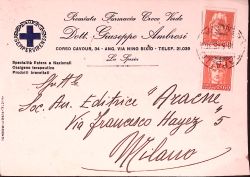 Premiata Farmacia Croce Verde
Dott. Giuseppe Ambrosi
CORSO CAVOUR, 34 - ANG. VIA NINO BIXIO - TELEF. 21.039
La Spezia
Specialità Estere e Nazionali
Ossigeno terapeutico
Prodotti brevettati
Spett.le
Soc. An. Editrice "Arache"
Via Francesco Hayez 5
Milano